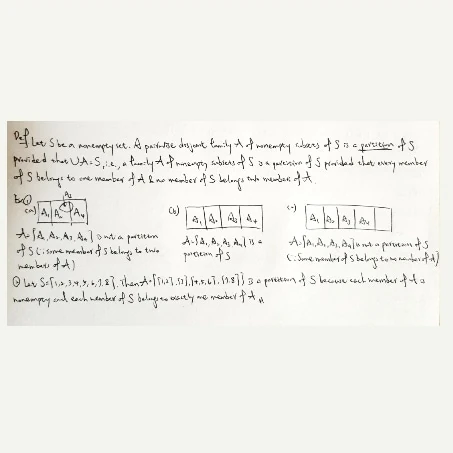 Def Let S be a nonempty set. A pairwise disjoint family A of nonempty subsets of S is a partition of S
provided that ∪A=S, i.e., a family A of nonempty subsets of S is a partition of S provided that every member
of S belongs to one member of A & no member of S belongs two member of A.
A₃
(a) A₁ A₂ A₄
(b) A₁ A₂ A₃ A₄
(c) A₁ A₂ A₃ A₄
A={A₁,A₂,A₃,A₄} is not a partition
of S (∵ some member of S belongs to two
members of A)
A={A₁,A₂,A₃,A₄} is a
partition of S
A={A₁,A₂,A₃,A₄} is not a partition of S
(∵ Some member of S belongs to no member of A)
② Let S={1,2,3,4,5,6,7,8}. Then A={{1,2},{3},{4,5,6},{7,8}} is a partition of S because each member of A is
nonempty and each member of S belongs to exactly one member of A